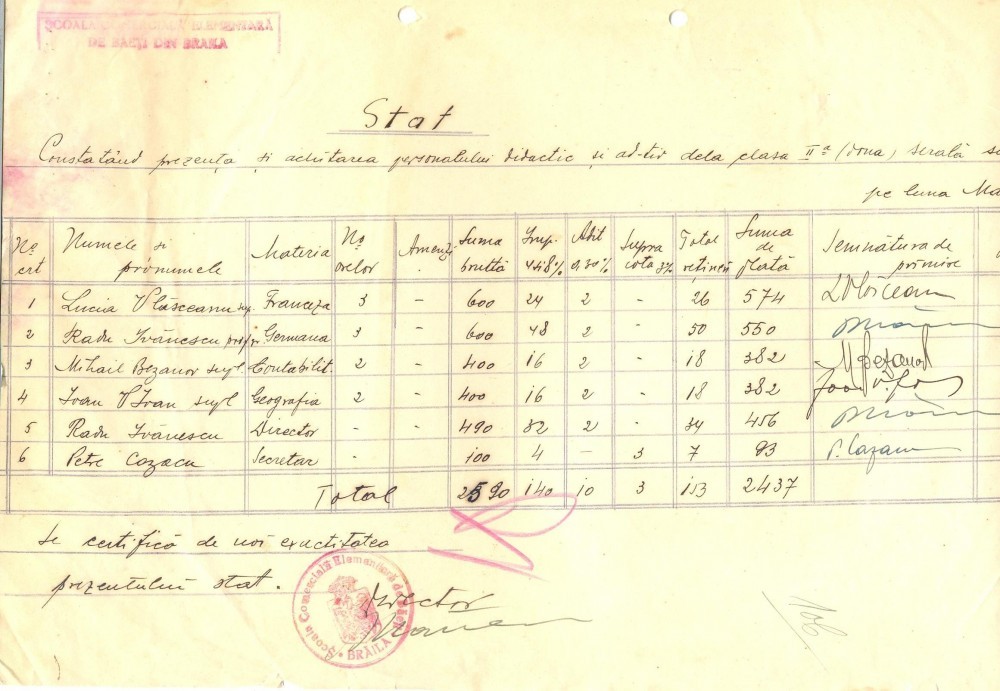 ȘCOALA COMERCIALĂ ELEMENTARĂ
DE BĂEȚI DIN BRĂILA
Stat
Constatând prezența și achitarea personalului didactic și ad-tiv dela clasa IIª (doua) serală
pe luna Ma
No crt Numele si pronumele Materia No orelor Amenzi Suma bruttă Imp. 448% Adit 0,30% Supra cota 3% Total rețineri Suma de plată Semnătura de primire
1 Lucia Vlăsceanu sup. Franceza 3 – 600 24 2 - 26 574
2 Radu Ivănescu prof. Germana 3 – 600 48 2 - 50 550
3 Mihail Bezanov supl. Contabilit. 2 – 400 16 2 - 18 382 M Bezanov
4 Ioan V Ivan supl Geografia 2 - 400 16 2 - 18 382
5 Radu Ivănescu Director - - 490 32 2 - 34 456
6 Petre Cozacu Secretar - 100 4 – 3 7 93
Total 2590 140 10 3 153 2437
Se certifică de noi exactitatea
prezentului stat.
Școala Comercială Elementară de
BRĂILA
Director
106